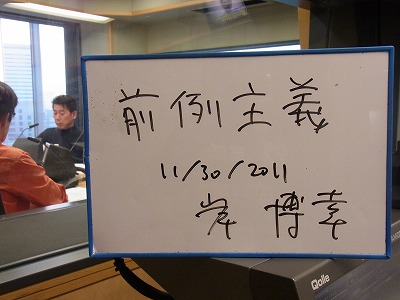 前例主義
11/30/2011
岸 博幸
Qolle